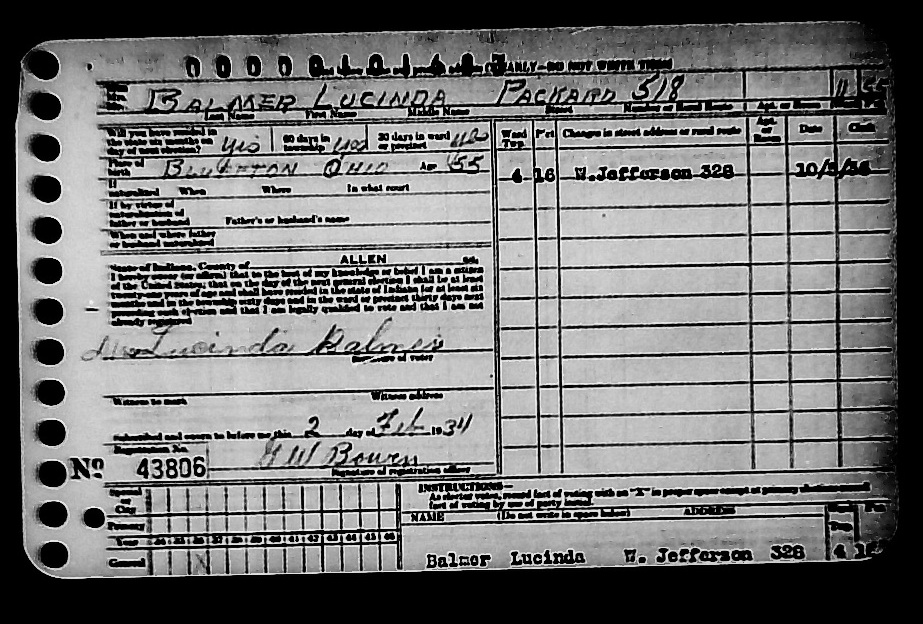 BALMER LUCINDA PACKARD 518 11
Last Name First Name Middle Name Street Number or Rural Route Apt. or Room
Will you have resided in the state six months on day of next election? yes 60 days in township yes 30 days in ward or precinct yes
Ward Twp. Pr't Changes in street address or rural route Apt. or Room Date Clerk
Place of birth BLUFFTON OHIO Age 55
4 16 W.Jefferson 328
If naturalized When Where In what court
If by virtue of naturalization of father or husband Father's or husband's name
When and where father or husband naturalized
State of Indiana, County of ALLEN ss.
I hereby swear (or affirm) that to the best of my knowledge or belief I am a citizen
of the United States; that on the day of the next general election I shall be at least
twenty-one years of age and shall have resided in the state of Indiana for at least six
months and in the township sixty days and in the ward or precinct thirty days next
preceding such election and that I am legally qualified to vote and that I am not
already registered
Mrs Lucinda Balmer
Signature of voter
Witness to mark Witness address
Subscribed and sworn to before me this 2 day of Feb 1934
Registration No.
No 43806 G W Bowen
Signature of registration officer
INSTRUCTIONS—
As elector votes, record fact of voting with an "X" in proper space except at primary elections record
fact of voting by use of party initial.
Special or City
Primary
NAME (Do not write in space below) ADDRESS Twp.
Year 34 35 36 37 38 39 40 41 42 43 44 45 46
General X
Balmer Lucinda W. Jefferson 328 4 16